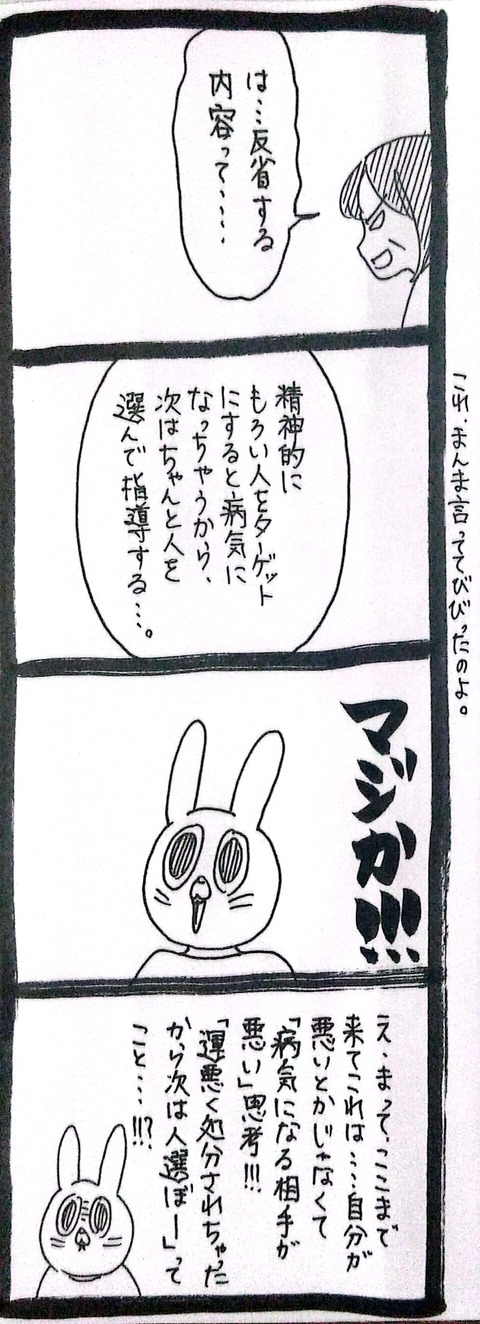 は…反省する
内容って……
これ、まんま言っててびびったのよ。
精神的に
もろい人をターゲット
にすると病気に
なっちゃうから、
次はちゃんと人を
選んで指導する…。
マジか!!!
え、まって、ここまで
来てこれは…自分が
悪いとかじゃなくて
「病気になる相手が
悪い」思考!!!
「運悪く処分されちゃった
から次は人選ぼー」って
こと…!!?